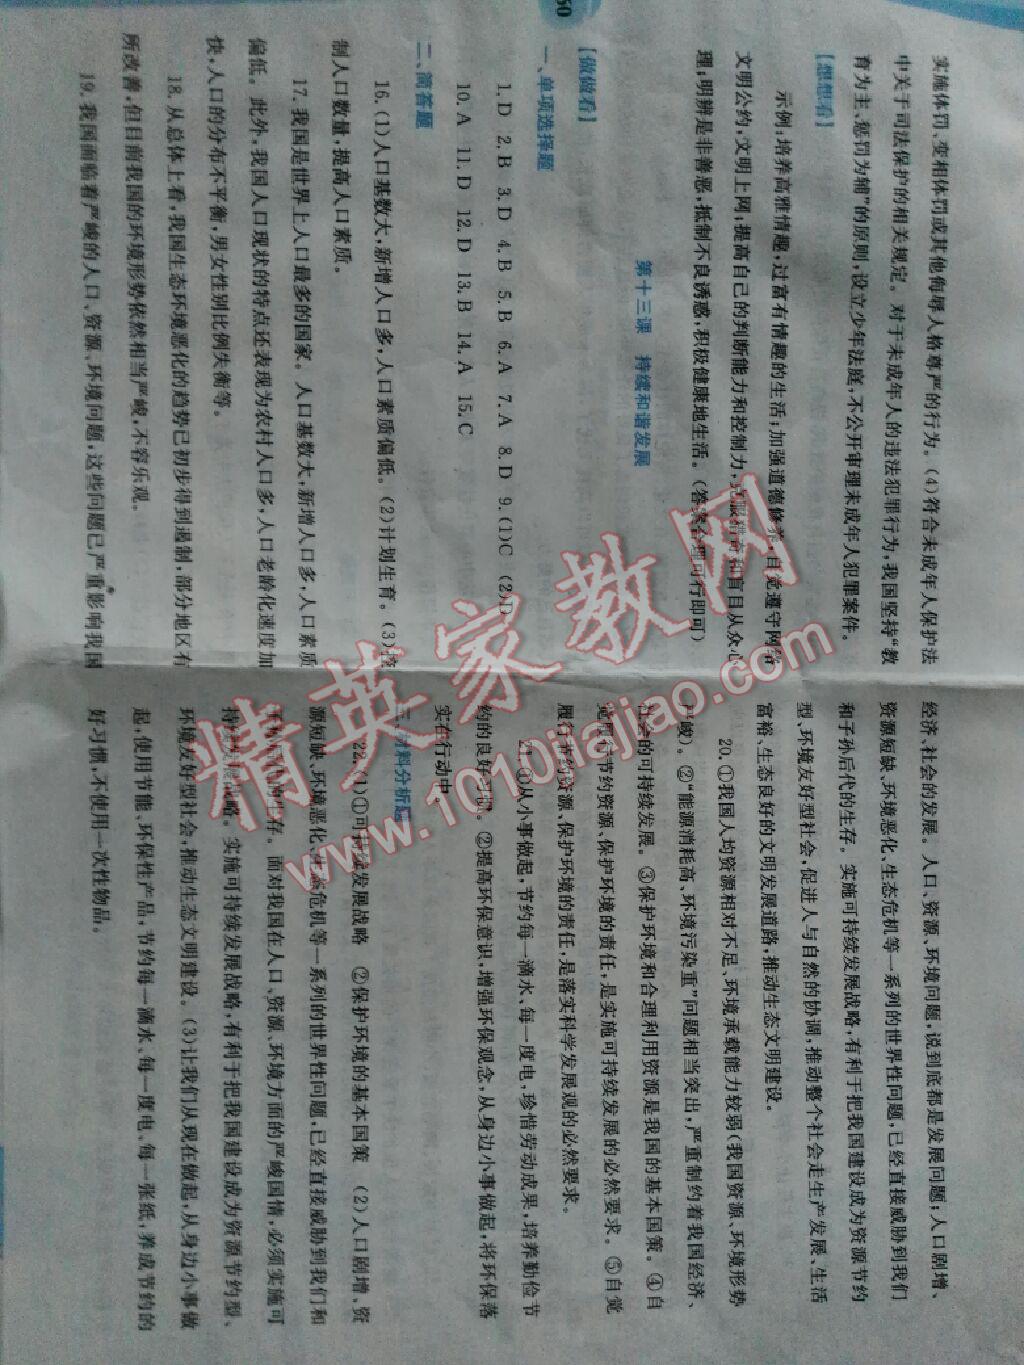 60
实施体罚、变相体罚或其他侮辱人格尊严的行为。(4)符合未成年人保护法
中关于司法保护的相关规定。对于未成年人的违法犯罪行为,我国坚持“教
育为主、惩罚为辅”的原则,设立少年法庭,不公开审理未成年人犯罪案件。
【想想看】
示例:培养高雅情趣,过富有情趣的生活;加强道德修养,自觉遵守网络
文明公约,文明上网;提高自己的判断能力和控制力,克服猎奇和盲目从众心
理;明辨是非善恶,抵制不良诱惑,积极健康地生活。(答案合理可行即可)
第十三课 持续和谐发展
【做做看】
一、单项选择题
1. D 2. B 3. D 4. B 5. B 6. A 7. A 8. D 9. (1)C (2)D
10. A 11. D 12. D 13. B 14. A 15. C
二、简答题
16. (1)人口基数大,新增人口多,人口素质偏低。(2)计划生育。(3)控
制人口数量,提高人口素质。
17. 我国是世界上人口最多的国家。人口基数大,新增人口多,人口素质
偏低。此外,我国人口现状的特点还表现为农村人口多,人口老龄化速度加
快,人口的分布不平衡,男女性别比例失衡等。
18. 从总体上看,我国生态环境恶化的趋势已初步得到遏制,部分地区有
所改善,但目前我国的环境形势依然相当严峻,不容乐观。
19. 我国面临着严峻的人口、资源、环境问题,这些问题已严重影响我国
经济、社会的发展。人口、资源、环境问题,说到底都是发展问题;人口剧增、
资源短缺、环境恶化、生态危机等一系列的世界性问题,已经直接威胁到我们
和子孙后代的生存。实施可持续发展战略,有利于把我国建设成为资源节约
型、环境友好型社会,促进人与自然的协调,推动整个社会走生产发展、生活
富裕、生态良好的文明发展道路,推动生态文明建设。
20. ①我国人均资源相对不足、环境承载能力较弱(我国资源、环境形势
严峻)。②“能源消耗高、环境污染重”问题相当突出,严重制约着我国经济、
社会的可持续发展。③保护环境和合理利用资源是我国的基本国策。④自
觉履行节约资源、保护环境的责任,是实施可持续发展的必然要求。⑤自觉
履行节约资源、保护环境的责任,是落实科学发展观的必然要求。
21. ①从小事做起,节约每一滴水、每一度电,珍惜劳动成果,培养勤俭节
约的良好习惯。②提高环保意识,增强环保观念,从身边小事做起,将环保落
实在行动中。
三、材料分析题
22. (1)①可持续发展战略 ②保护环境的基本国策 (2)人口剧增、资
源短缺、环境恶化、生态危机等一系列的世界性问题,已经直接威胁到我们和
子孙后代的生存。面对我国在人口、资源、环境方面的严峻国情,必须实施可
持续发展战略。实施可持续发展战略,有利于把我国建设成为资源节约型、
环境友好型社会,推动生态文明建设。(3)让我们从现在做起,从身边小事做
起,使用节能、环保性产品,节约每一滴水、每一度电、每一张纸,养成节约的
好习惯,不使用一次性物品。
精英家教网
www.1010jiajiao.com